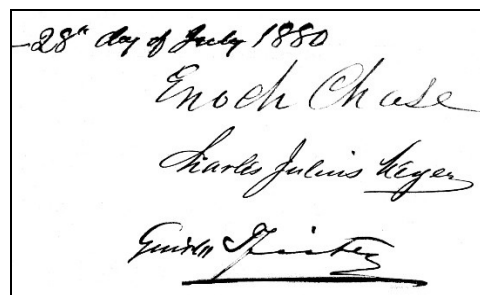 -28th day of July 1880
Enoch Chase
Charles Julius Meyer
Guido Pfister